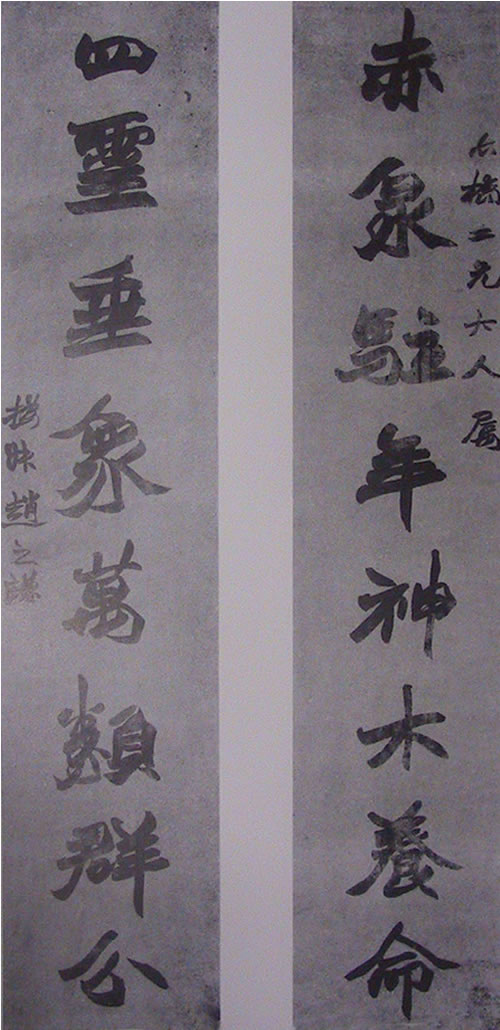 六橋二兄大人屬
赤泉駐年神木養命
四靈垂象萬類群分
撝叔趙之謙